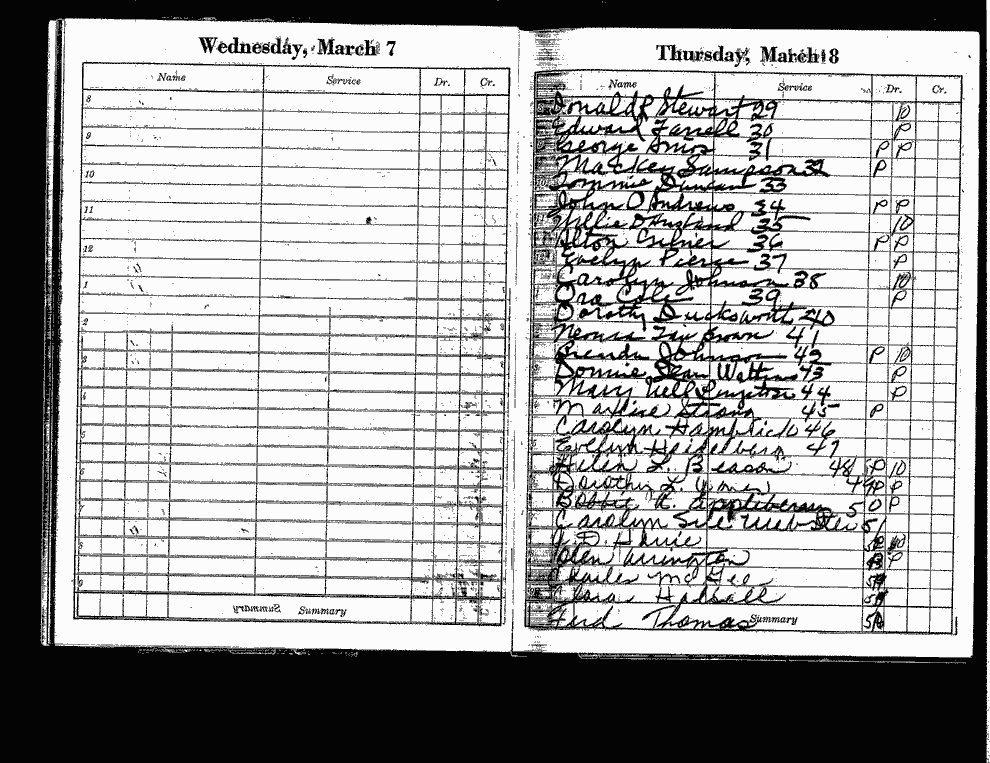 Wednesday, March 7
Name Service Dr. Cr.
8
9
10
11
12
1
2
3
4
5
6
7
8
9
Summary
Thursday, March 8
Name Service Dr. Cr.
Donald L Stewart 29 10
Edward Farrell 30 P
George Amos 31 P P
Mackey Sampson 32 P
Tommie Duncan 33
John O Andrews 34 P P
Willie D Husband 35 10
Alton Gibner 36 P P
Evelyn Pierce 37 P
Carolyn Johnson 38 10
Ora Cole 39 P
Dorothy Ducksworth 40
Neoma Fay Brown 41
Brenda Johnson 42 P 10
Donnie Jean Watts 43 P
Mary Nell 44 P
Maxine Strong 45 P
Carolyn Hamblic 46
Evelyn Heidelberg 47
Helen L. Beason 48 P 10
Dorothy L. Jones P
Bobbie R. 50 P
Carolyn Sue Webster 51
J. D. Harris
Olen Arrington P
Charles McGee
Clara Hadsell
Ford Thomas Summary